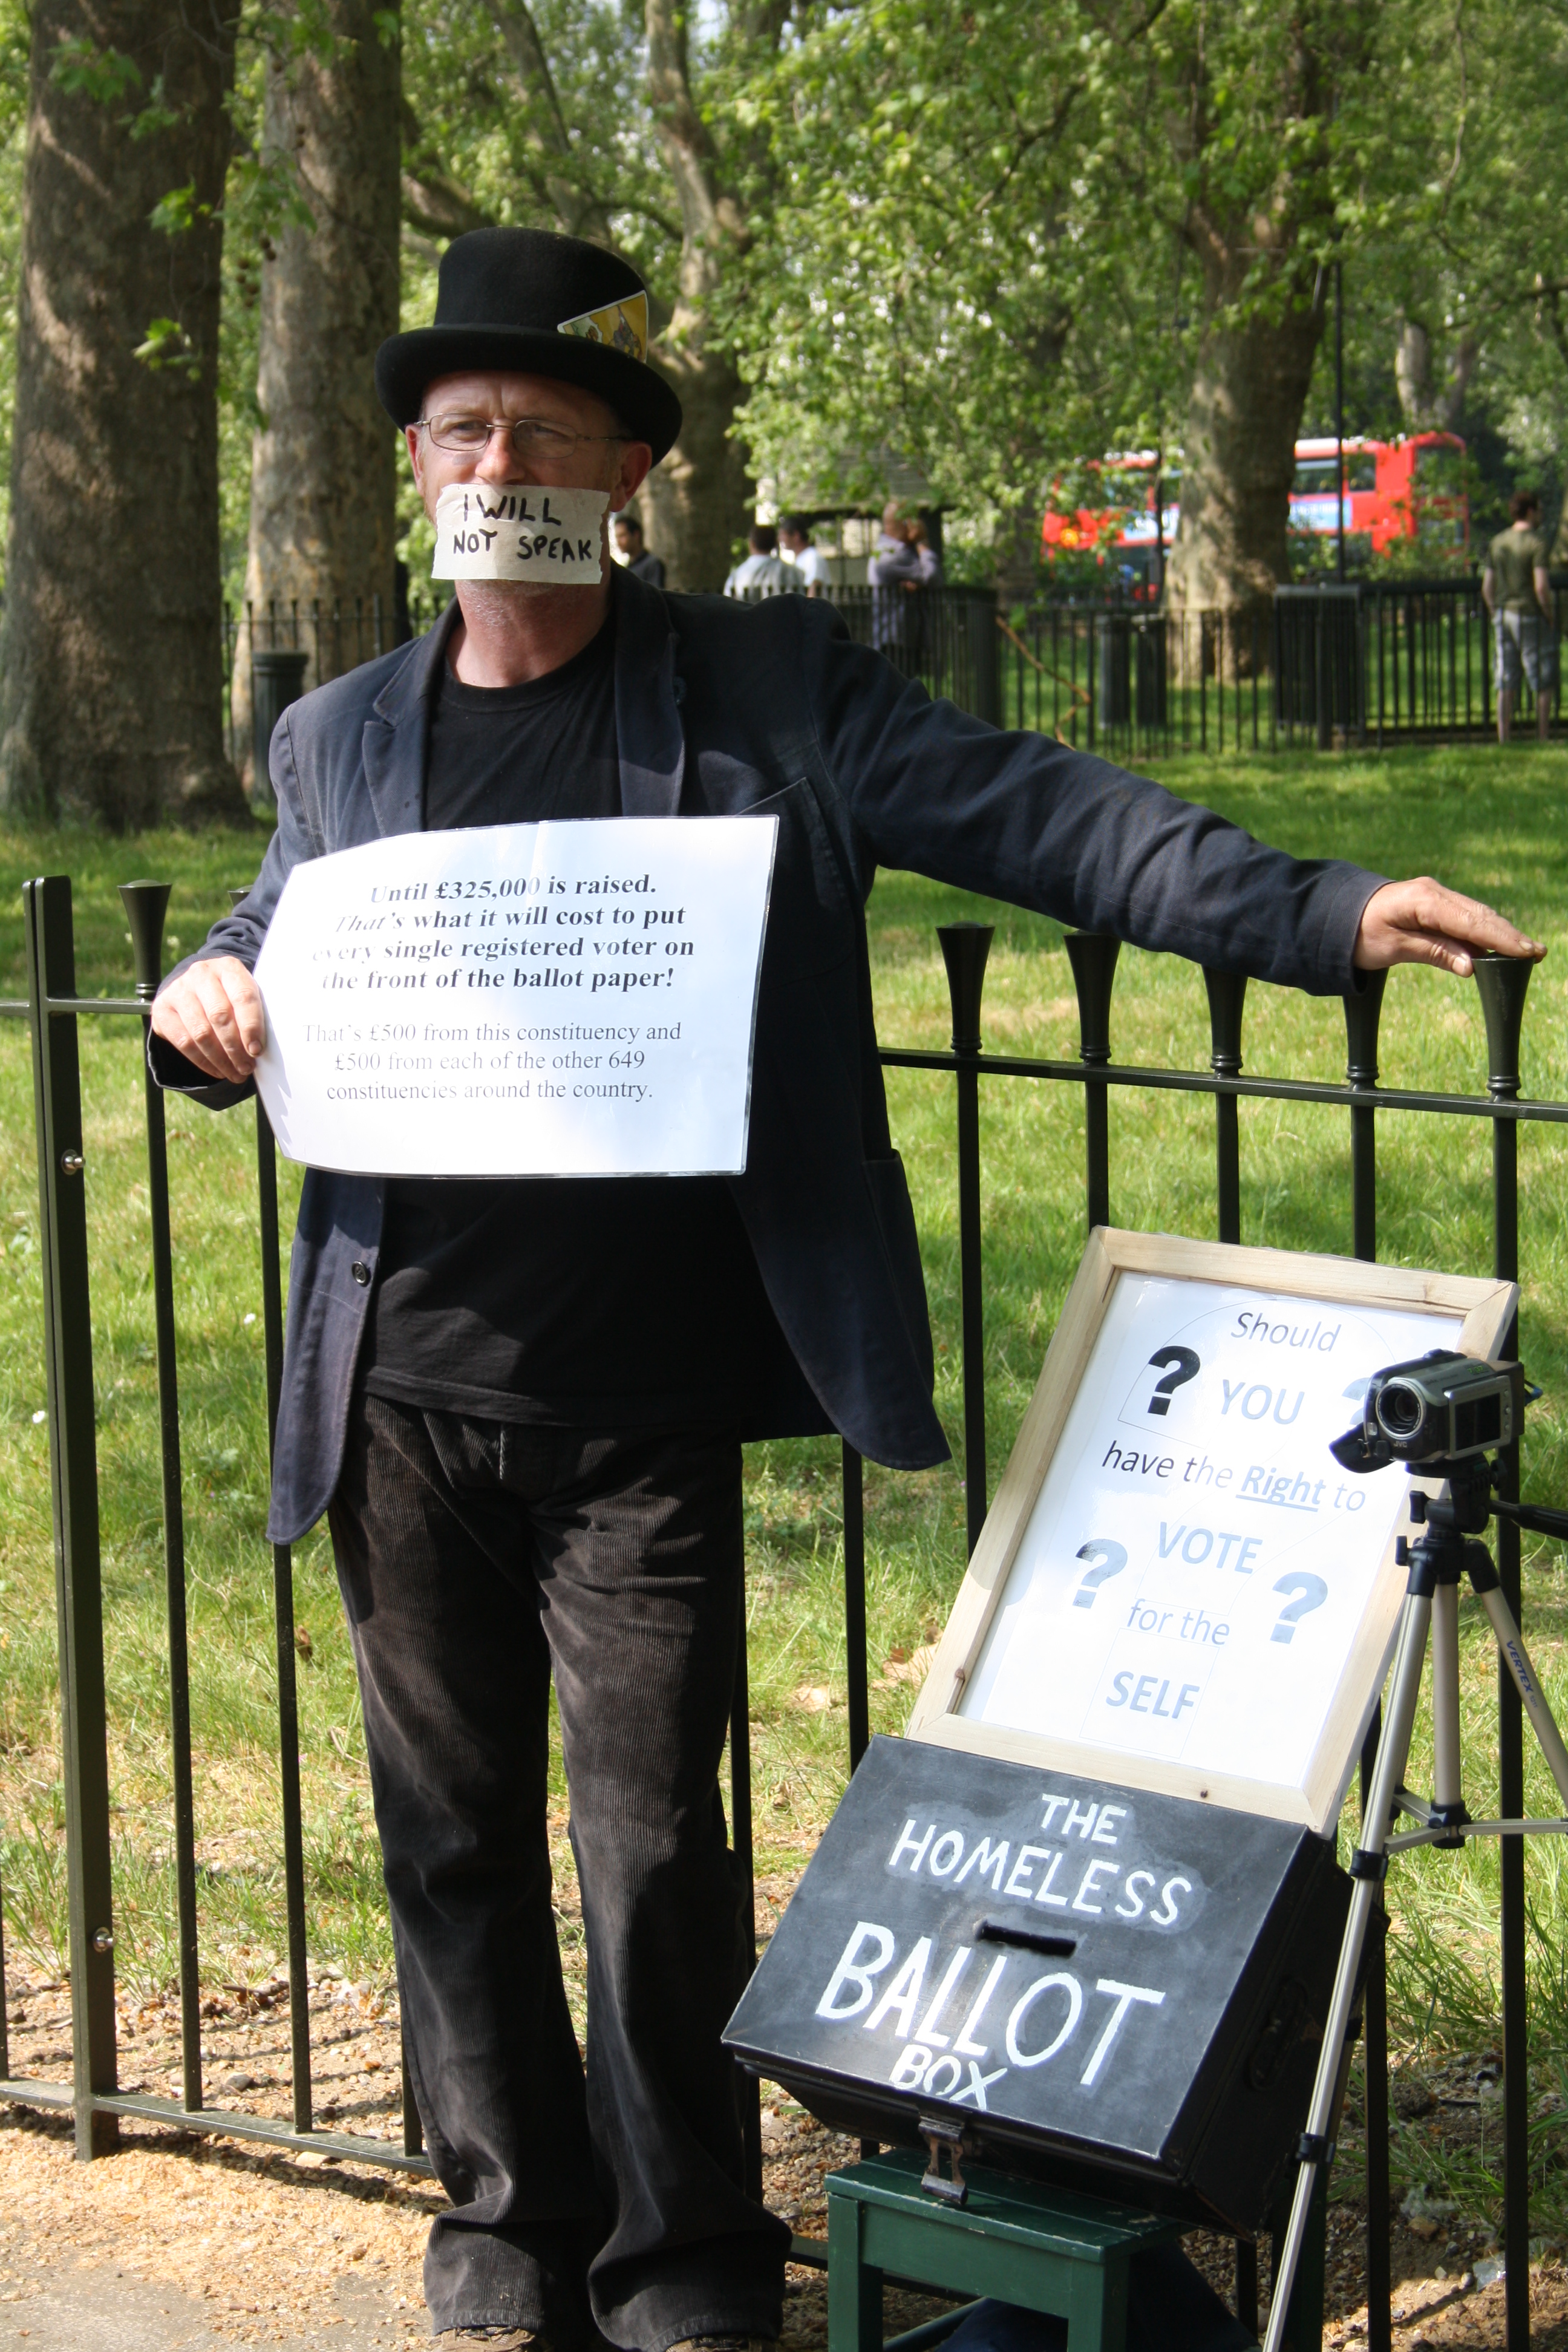 I WILL
NOT SPEAK
Until £325,000 is raised.
That's what it will cost to put
every single registered voter on
the front of the ballot paper!
That's £500 from this constituency and
£500 from each of the other 649
constituencies around the country.
Should
? YOU ?
have the Right to
VOTE
? ?
for the
SELF
THE
HOMELESS
BALLOT
BOX
JVC
VERTEX